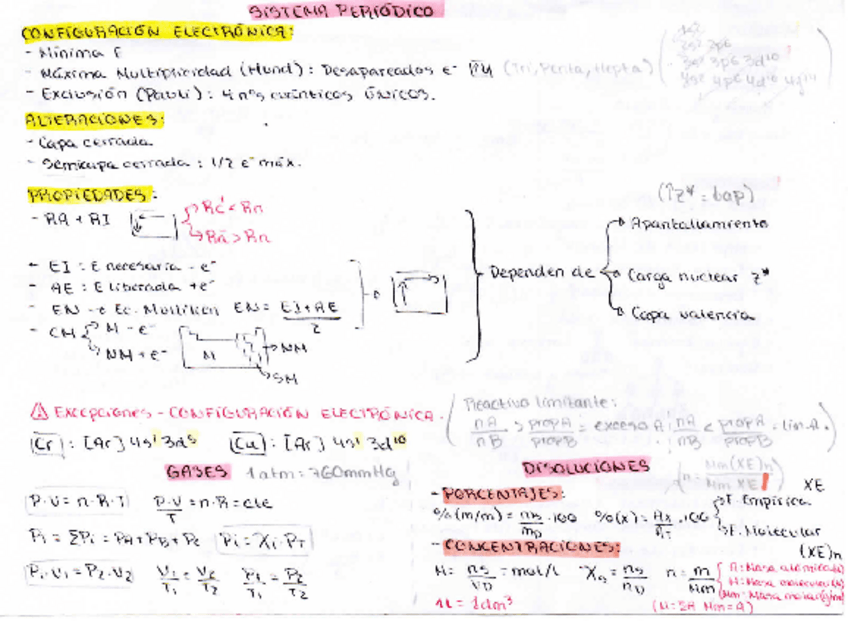 SISTEMA PERIÓDICO
CONFIGURACIÓN ELECTRÓNICA:
- Mínima E
- Máxima Multiplicidad (Hund): Desapareados e⁻ (Tri, Penta, Hepta)
- Exclusión (Pauli): 4 nºs cuánticos ÚNICOS.
1s2
2s2 2p6
3s2 3p6 3d10
4s2 4p6 4d10 4f14
ALTERACIONES:
- Capa cerrada
- Semicapa cerrada: 1/2 e⁻ máx.
PROPIEDADES:
- RA + RI
Rc < Rn
Ra > Rn
- EI: E necesaria - e⁻
- AE: E liberada + e⁻
EN → Ec. Mulliken EN = EI + AE / 2
- CM
M - e⁻
NM + e⁻
M
NM
SM
Dependen de
(↑z* = bap)
Apantallamiento
Carga nuclear z*
Capa valencia
⚠ Excepciones - CONFIGURACIÓN ELECTRÓNICA.
Cr: [Ar] 4s1 3d5 Cu: [Ar] 4s1 3d10
Reactivo limitante:
nA / nB > propA / propB = exceso A; nA / nB < propA / propB = lim A.
GASES 1 atm = 760 mmHg
P·V = n·R·T P·V / T = n·R = cte
Pi = ΣPi = PA + PB + PC Pi = Xi · PT
P1·V1 = P2·V2 V1 / T1 = V2 / T2 P1 / T1 = P2 / T2
DISOLUCIONES
n = Mm(XE)n / Mm XE
- PORCENTAJES:
%(m/m) = ms / mD · 100 %(x) = Ax / AT · 100
XE
F. Empírica
F. Molecular
(XE)n
- CONCENTRACIONES:
M = ns / VD = mol/l Xs = ns / nD n = m / Mm
1L = 1dm3
(M = ΣA Mm = A)